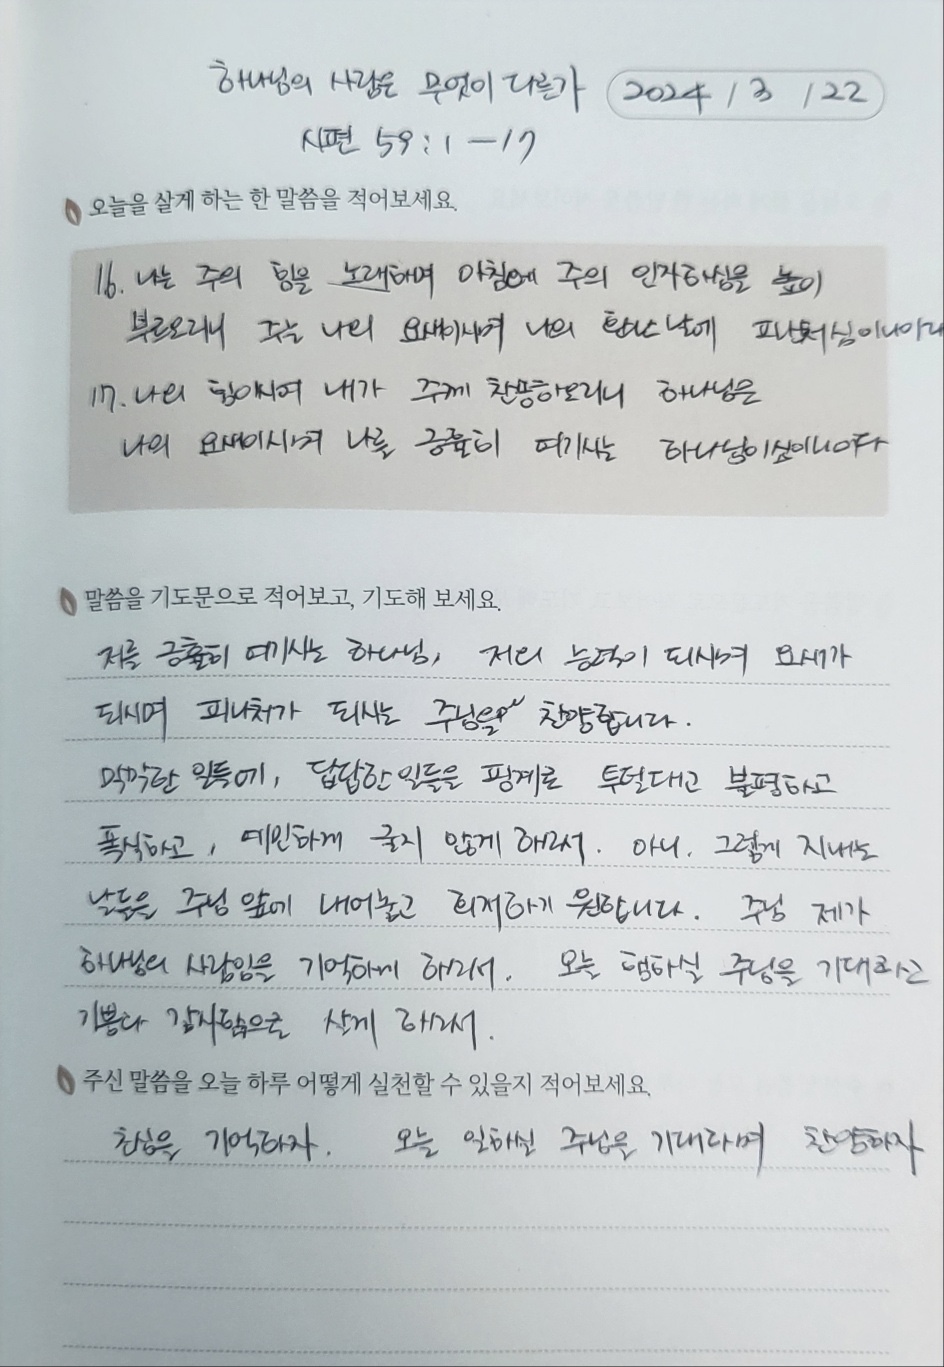 하나님의 사람은 무엇이 다른가 2024 / 3 / 22
시편 59 : 1 - 17
오늘을 살게 하는 한 말씀을 적어보세요.
16. 나는 주의 힘을 노래하며 아침에 주의 인자하심을 높이
부르오리니 주는 나의 요새이시며 나의 환난 날에 피난처심이니이다
17. 나의 힘이시여 내가 주께 찬송하오리니 하나님은
나의 요새이시며 나를 긍휼히 여기시는 하나님이심이니이다
말씀을 기도문으로 적어보고, 기도해 보세요.
저를 긍휼히 여기시는 하나님, 저의 능력이 되시며 요새가
되시며 피난처가 되시는 주님을 찬양합니다.
막막한 일들에, 답답한 일들을 핑계로 투덜대고 불평하고
폭식하고, 예민하게 굴지 않게 해주서. 아니, 그렇게 지내는
날들을 주님 앞에 내어놓고 회개하기 원합니다. 주님 제가
하나님의 사람임을 기억하게 하소서. 오늘 행하실 주님을 기대하고
기쁨과 감사함으로 살게 하소서.
주신 말씀을 오늘 하루 어떻게 실천할 수 있을지 적어보세요.
기억하자. 오늘 일하실 주님을 기대하며 찬양하자